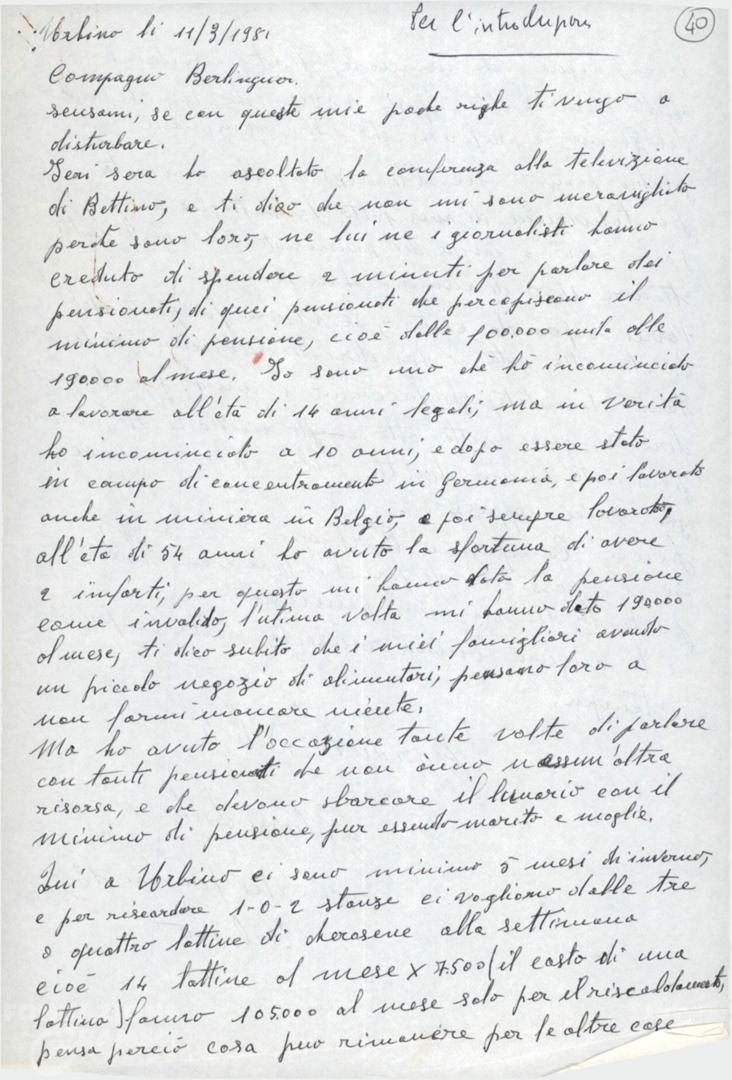 Urbino li 11/3/1981
Per l'introduzione
40
Compagno Berlinguer.
scusami, se con queste mie poche righe ti vengo a
disturbare.
Ieri sera ho ascoltato la conferenza alla televizione
di Bettino, e ti dico che non mi sono meravigliato
perchè sono loro, ne lui ne i giornalisti hanno
creduto di spendere 2 minuti per parlare dei
pensionati, di quei pensionati che percepiscono il
minimo di pensione, cioè dalle 100.000 mila alle
190000 al mese. Io sono uno che hò incominciato
a lavorare all'età di 14 anni legali, ma in verità
ho incominciato a 10 anni, e dopo essere stato
in campo di concentramento in Germania, e poi lavorato
anche in miniera in Belgio, e poi sempre lavorato,
all'età di 54 anni ho avuto la sfortuna di avere
2 infarti, per questo mi hanno dato la pensione
come invalido, l'utima volta mi hanno dato 190000
al mese, ti dico subito che i miei famigliari avendo
un piccolo negozio di alimentari, pensano loro a
non farmi mancare niente.
Ma ho avuto l'occazione tante volte di parlare
con tanti pensionati che non ànno nessun'altra
risorsa, e che devono sbarcare il lunario con il
minimo di pensione, pur essendo marito e moglie.
Qui a Urbino ci sono minimo 5 mesi di inverno,
e per riscardare 1-0-2 stanze ci vogliono dalle tre
o quattro lattine di cherosene alla settimana
cioè 14 lattine al mese x 7.500 (il costo di una
lattina) fanno 105.000 al mese solo per il riscaldamento,
pensa perciò cosa può rimanere per le altre cose